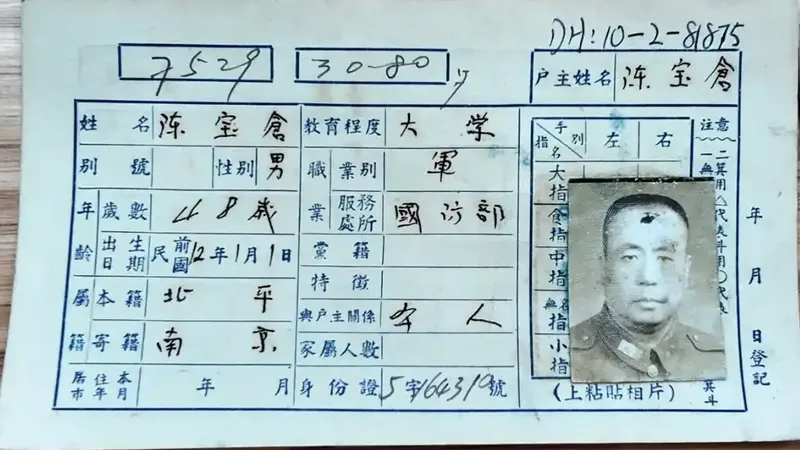 DH:10-2-81875
7529
30-80
户主姓名 陈宝倉
姓名 陈宝倉
别號
性别 男
年齡 歲數 48歲
出生日期 民前國12年1月1日
屬籍 本籍 北平
寄籍 南京
居住本市年月 年 月
教育程度 大学
職業 業别 軍
服務處所 國防部
黨籍
特徵
與戶主關係 本人
家屬人數
身份證 5字164310號
手别 指名 左 右
大指
食指
中指
無名指
小指
(上粘貼相片)
注意
二箕用△代表斗用○代表
無
其斗
年月日登記